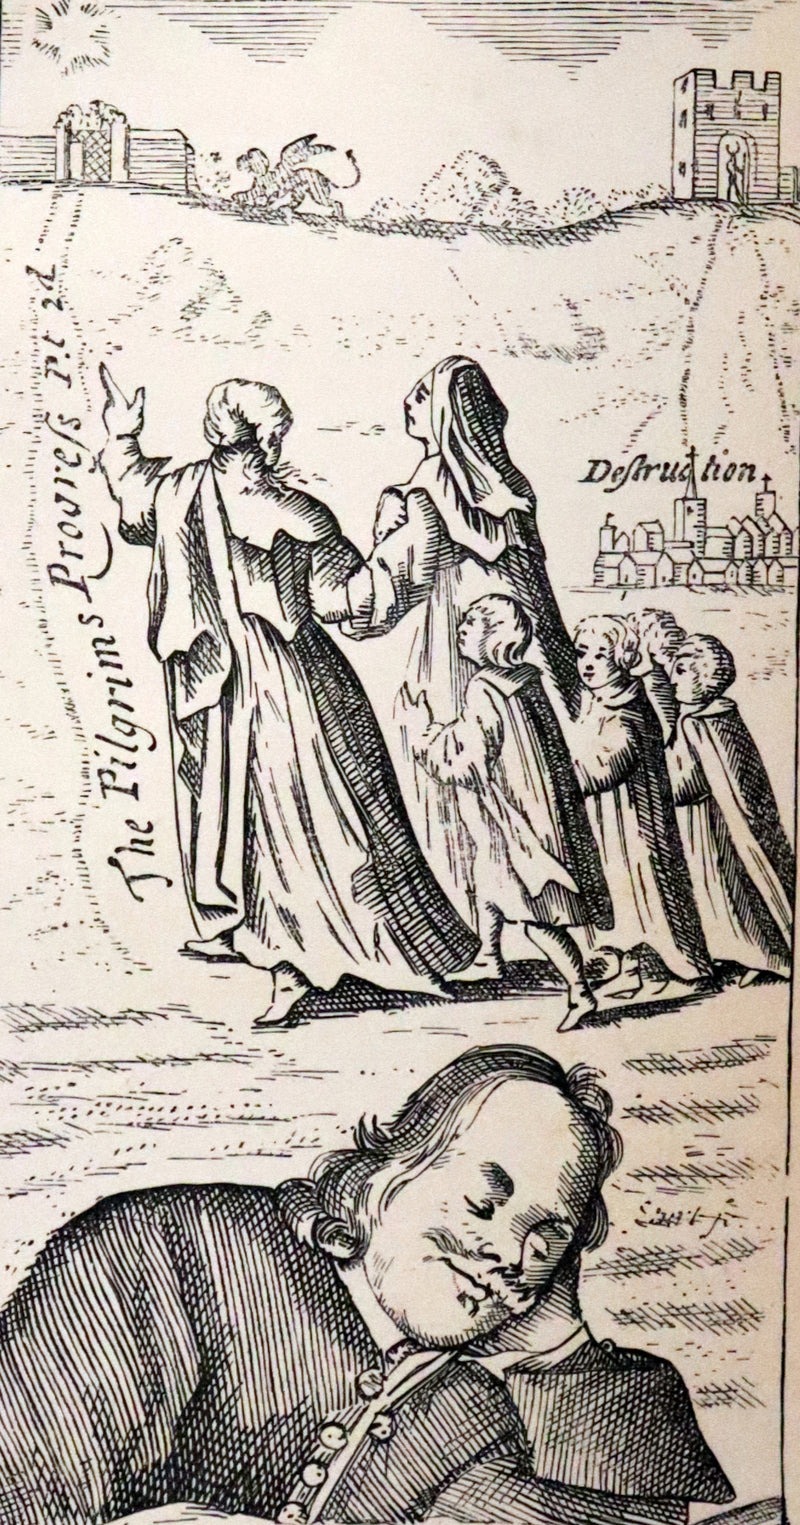 The Pilgrims Progreſs P.t 2d
Deſtruction